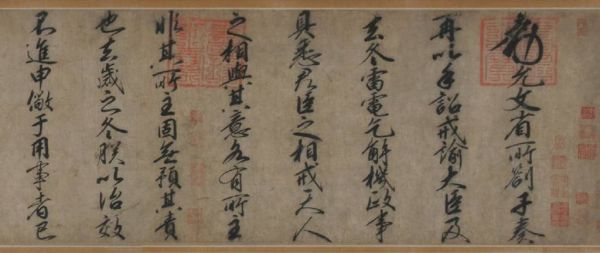 勅允文省所劄子奏
再以手詔戒諭大臣及
去冬雷電乞解機政事
具悉君臣之相戒天人
之相與其意各有所主
非其所主固無預其責
也去歲之冬朕以治效
不進申儆于用事者已